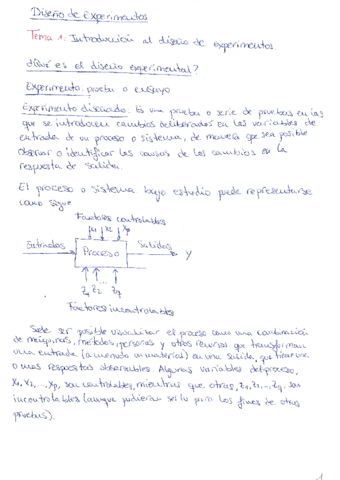 Diseño de Experimentos.
Tema 1: Introducción al diseño de experimentos
¿Qué es el diseño experimental?
Experimento: prueba o ensayo
Experimento diseñado: Es una prueba o serie de pruebas en las
que se introducen cambios deliberados en las variables de
entrada de un proceso o sistema, de manera que sea posible
observar o identificar las causas de los cambios en la
respuesta de salida.
El proceso o sistema bajo estudio puede representarse
como sigue
Factores controlables
x1 x2 xp
Entradas Proceso Salidas y
z1 z2 zq
Factores incontrolables
Suele ser posible visualizar el proceso como una combinación
de máquinas, métodos, personas y otros recursos que transforman
una entrada (a menudo un material) en una salida, que tiene una
o más respuestas observables. Algunas variables del proceso,
x1, x2, ..., xp, son controlables, mientras que otras, z1, z2, ..., zq, son
incontrolables (aunque pudieran serlo para los fines de otras
pruebas).
1